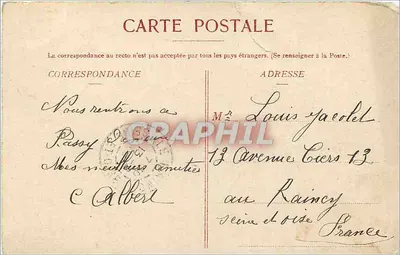 CARTE POSTALE
La correspondance au recto n'est pas acceptée par tous les pays étrangers. (Se renseigner à la Poste.)
CORRESPONDANCE
ADRESSE
Nous rentrons a
Passy
Mes meilleurs amities
C Albert
Mr Louis Jacolet
13 Avenue Tiers 13
au Raincy
Seine et oise
France
CPAPHIL